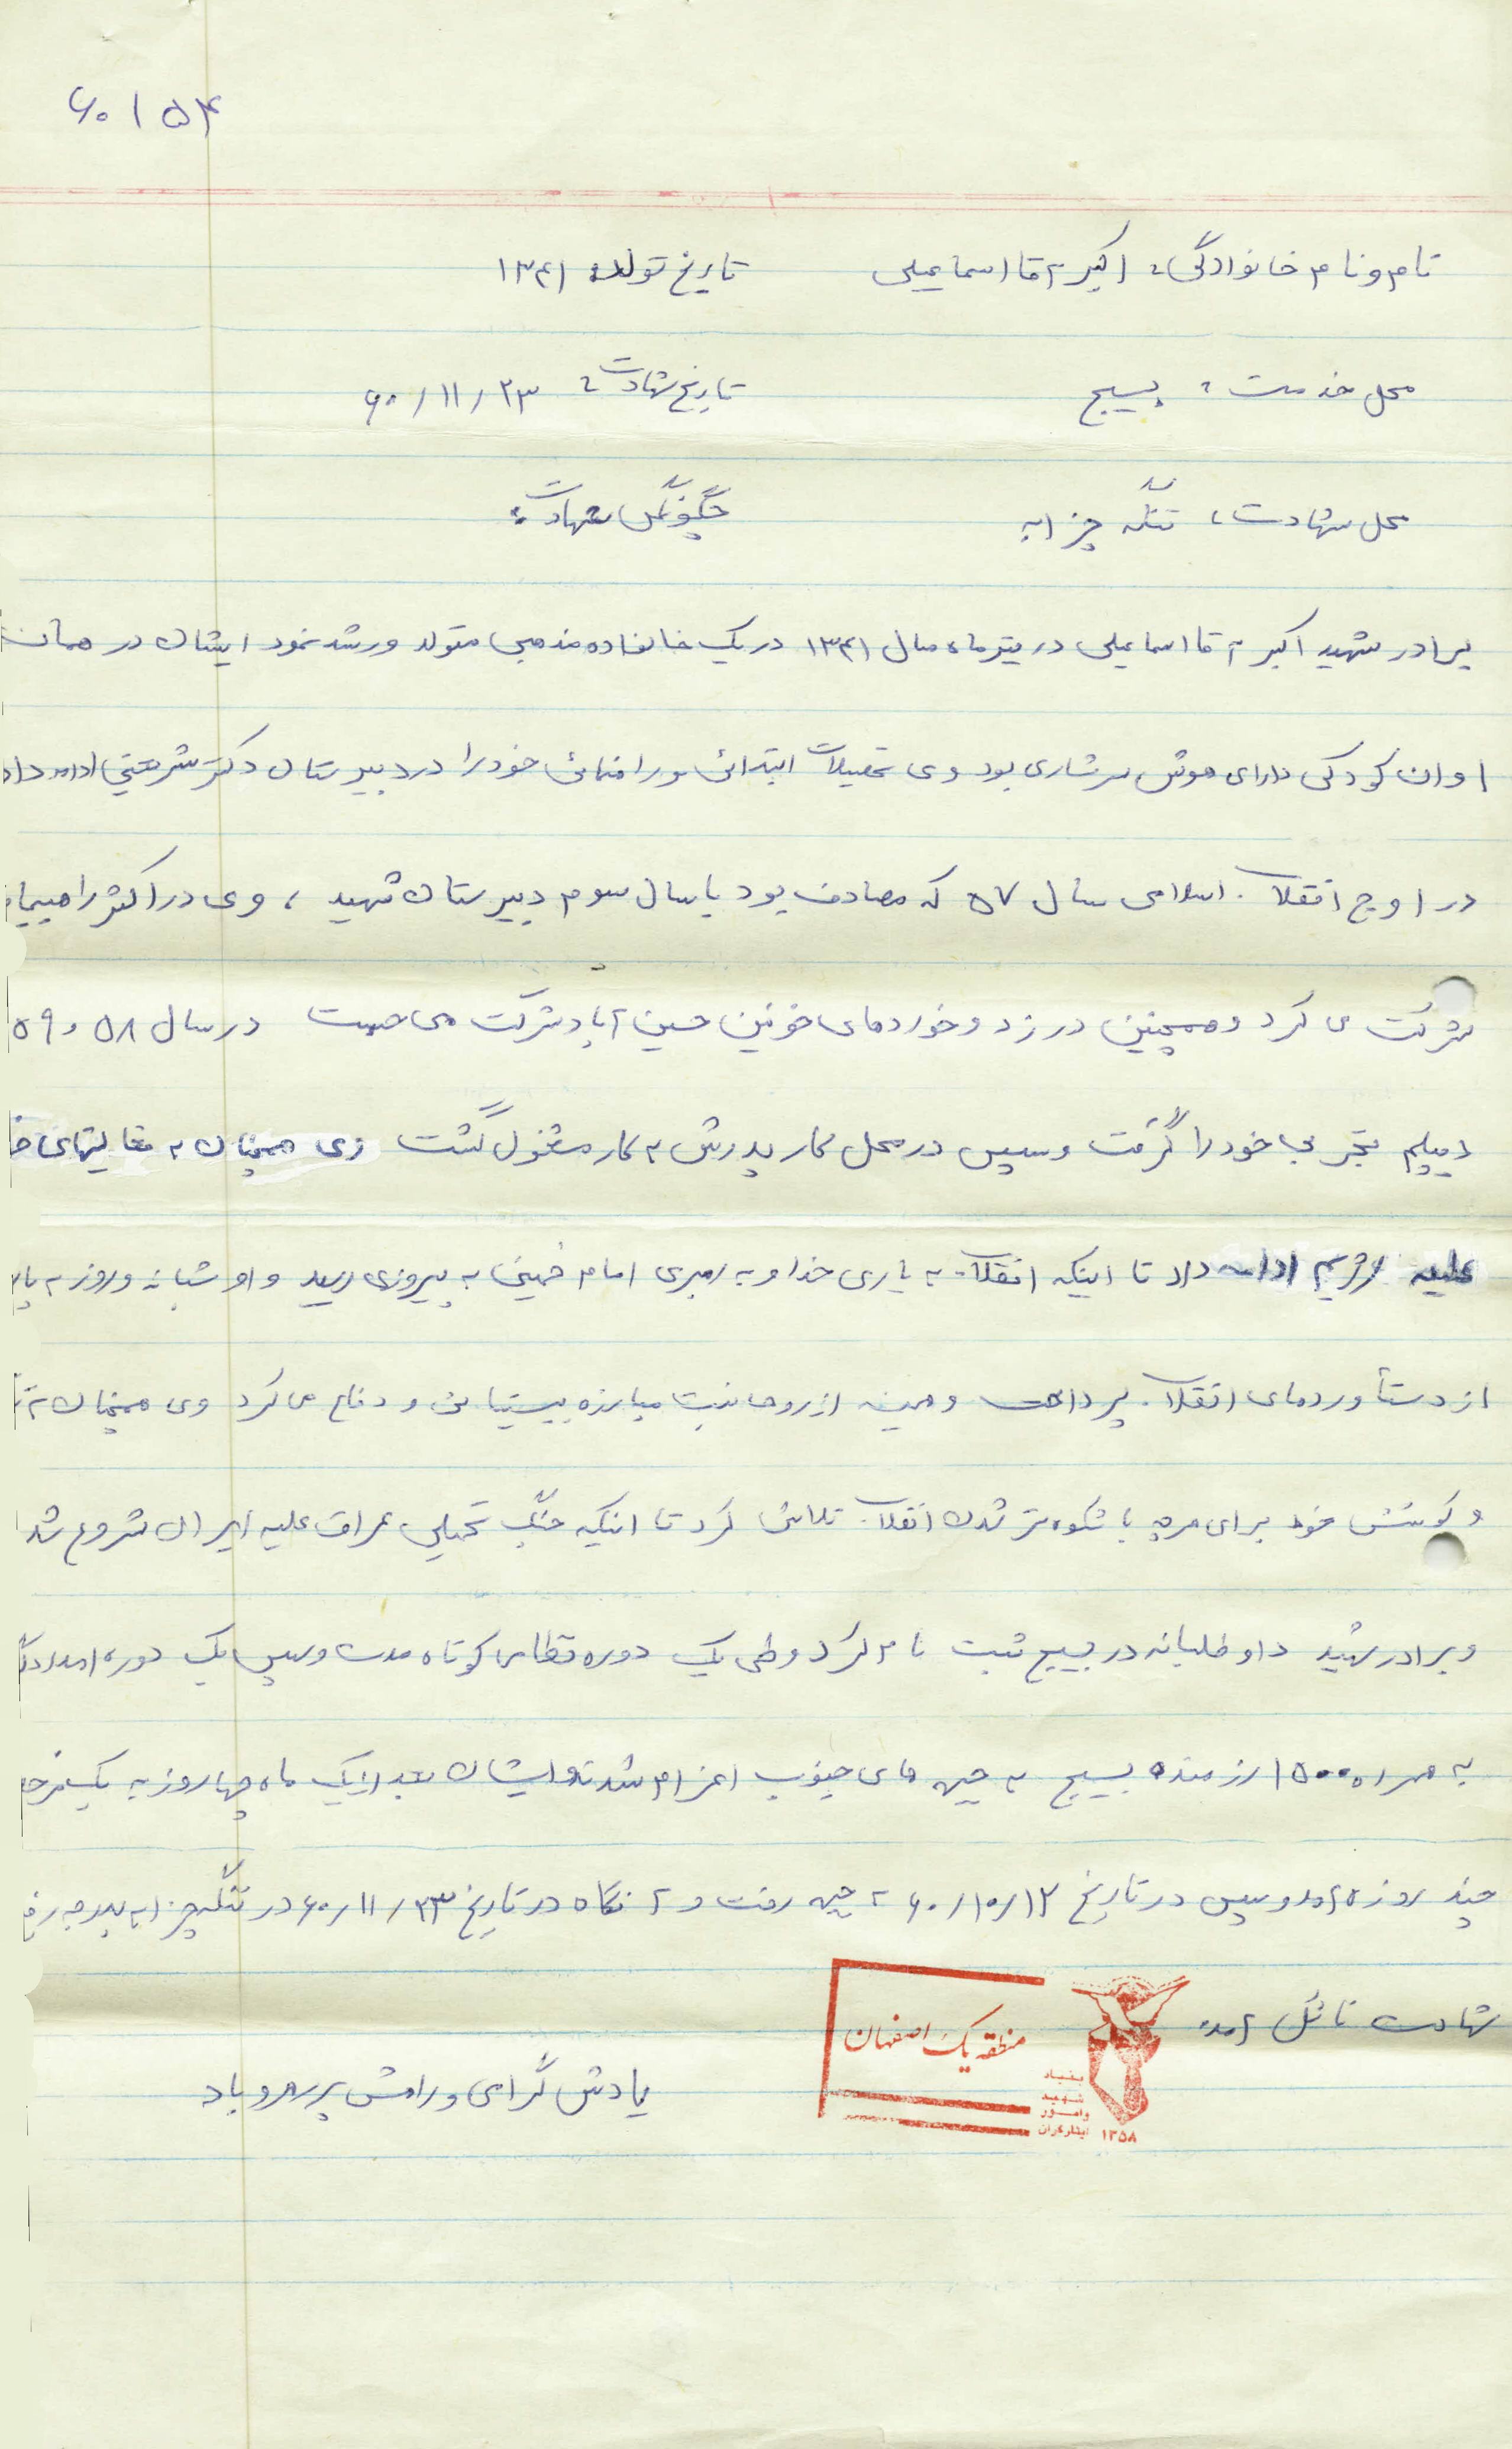 ۶۰۱۵۴
نام و نام خانوادگی: اکبر آقا اسماعیلی تاریخ تولد: ۱۳۴۱
محل خدمت: بسیج تاریخ شهادت: ۶۰/۱۱/۲۳
محل شهادت: تنگه چزابه چگونگی شهادت:
برادر شهید اکبر آقا اسماعیلی در تیرماه سال ۱۳۴۱ در یک خانواده مذهبی متولد و رشد نمود ایشان در همان
اوان کودکی دارای هوش سرشاری بود وی تحصیلات ابتدائی و راهنمائی خود را در دبیرستان دکتر شریعتی ادامه داد
در اوج انقلاب اسلامی سال ۵۷ که مصادف بود با سال سوم دبیرستان شهید ، وی در اکثر راهپیما
شرکت می کرد و همچنین در زد و خوردهای خونین حسین آباد شرکت می جست در سال ۵۸ و ۵۹
دیپلم تجربی خود را گرفت و سپس در محل کار پدرش به کار مشغول گشت وی همچنان به فعالیتهای
علیه رژیم ادامه داد تا اینکه انقلاب به یاری خدا و به رهبری امام خمینی به پیروزی رسید و او شبانه و روز به پا
از دستآوردهای انقلاب پرداخت و همیشه از روحانیت مبارزه پشتیبانی و دفاع می کرد وی همچنان به
و کوشش خود برای هرچه با شکوه تر شدن انقلاب تلاش کرد تا اینکه جنگ تحمیلی عراق علیه ایران شروع شد
و برادر شهید داوطلبانه در بسیج ثبت نام کرد و طی یک دوره نظامی کوتاه مدت و سپس یک دوره امدادگ
به همراه ۱۵۰۰ رزمنده بسیج به جبهه های جنوب اعزام شدند و ایشان بعد از یک ماه و چهار روز به یک مرخ
چند روزه آمد و سپس در تاریخ ۶۰/۱۰/۱۲ به جبهه رفت و آنگاه در تاریخ ۶۰/۱۱/۲۳ در تنگه چزابه به درجه رفی
شهادت نائل آمد.
منطقه یک اصفهان
بنیاد
شهید
و امور
ایثارگران ۱۳۵۸
یادش گرامی و راهش پر رهرو باد